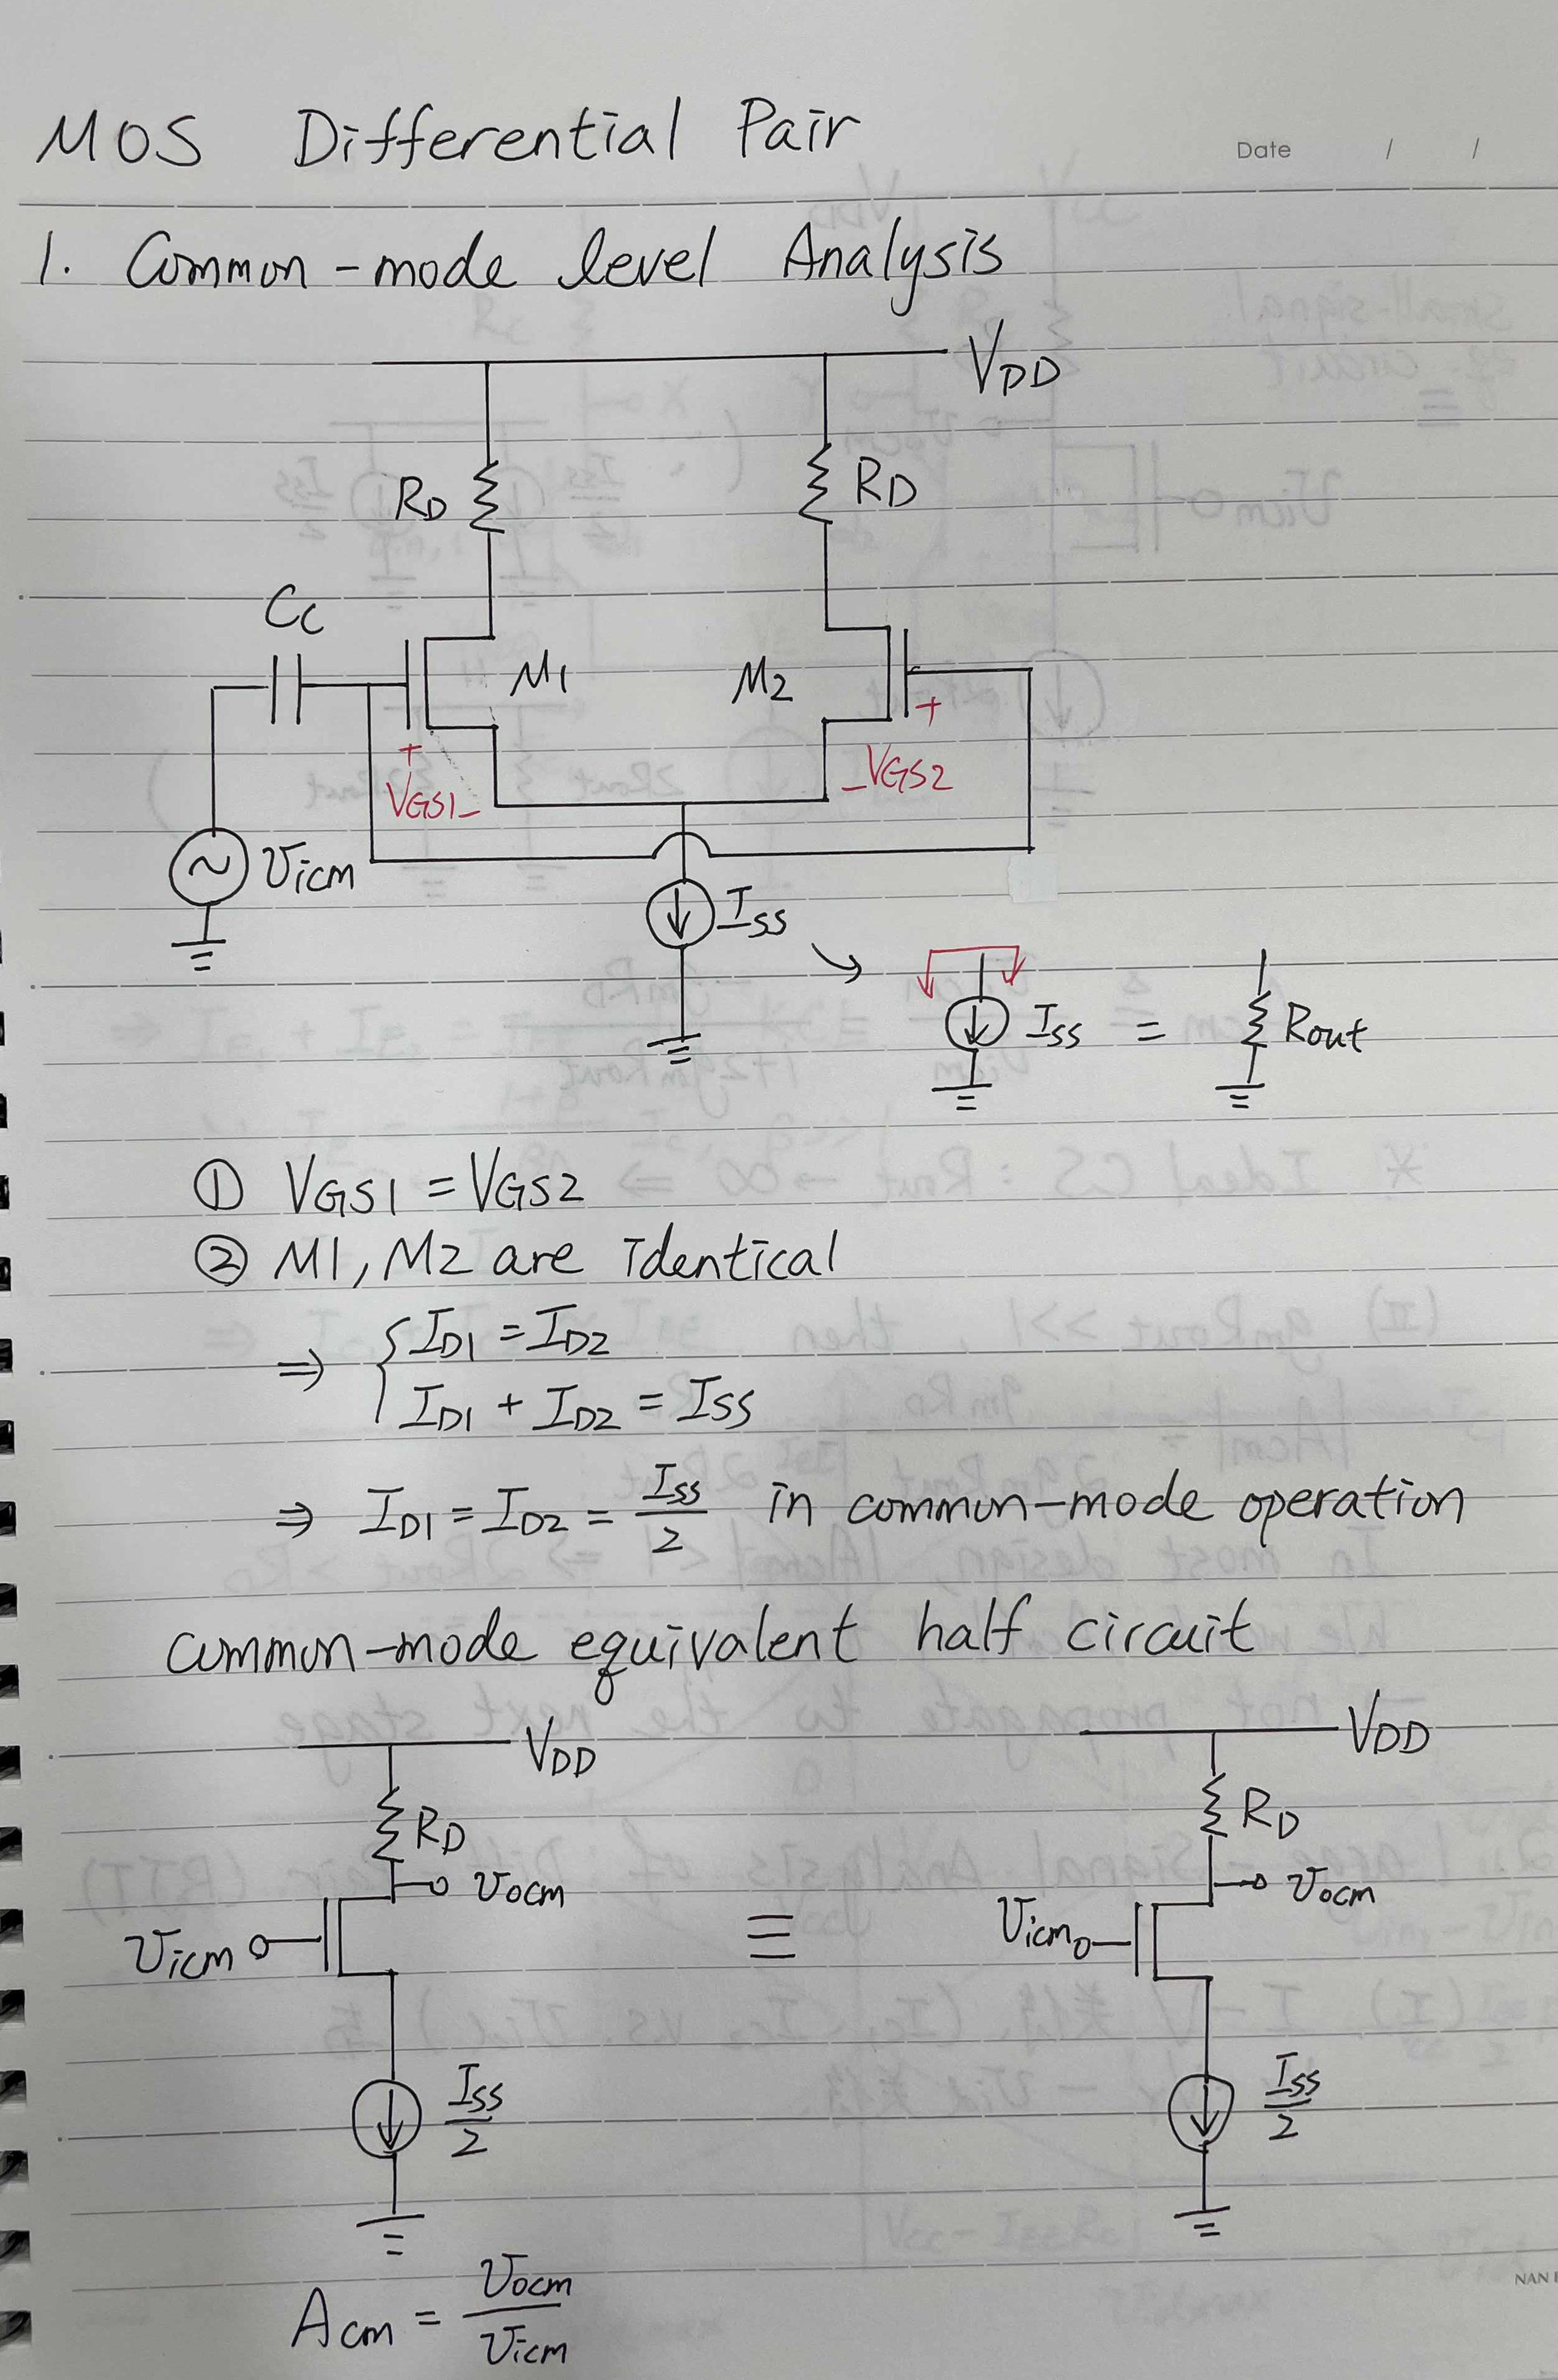 MOS Differential Pair
Date / /
1. Common-mode level Analysis
VDD
RD
RD
Cc
M1
M2
+
+
VGS1-
-VGS2
Vicm
ISS
ISS = Rout
① VGS1 = VGS2
② M1, M2 are identical
⇒ { ID1 = ID2
ID1 + ID2 = ISS
⇒ ID1 = ID2 = ISS/2 in common-mode operation
common-mode equivalent half circuit
VDD
VDD
RD
RD
Vocm
Vocm
Vicm
≡
Vicm
ISS/2
ISS/2
Acm = Vocm/Vicm